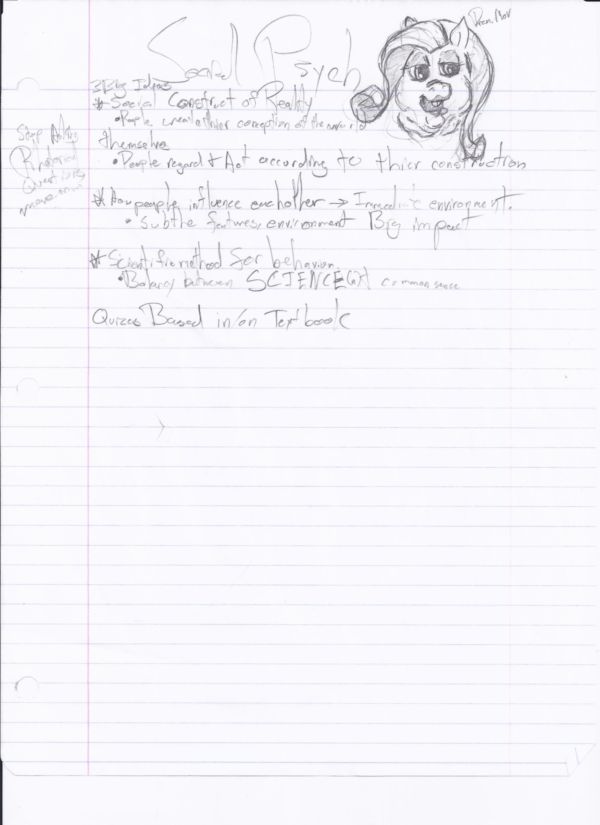 Social Psych
3 Big Ideas
* Social Construct of Reality
• People thier conception of the world
themselve
• People regard + Act according to thier construction
* How people influence eachother → Immediate environment.
• Subthe features, environment Big impact
* Scientific method for behavior
• Balancy between SCIENCE common sense
Quizes Based in/on Text book
Stop Asking
Rhetorical
Questions
move on